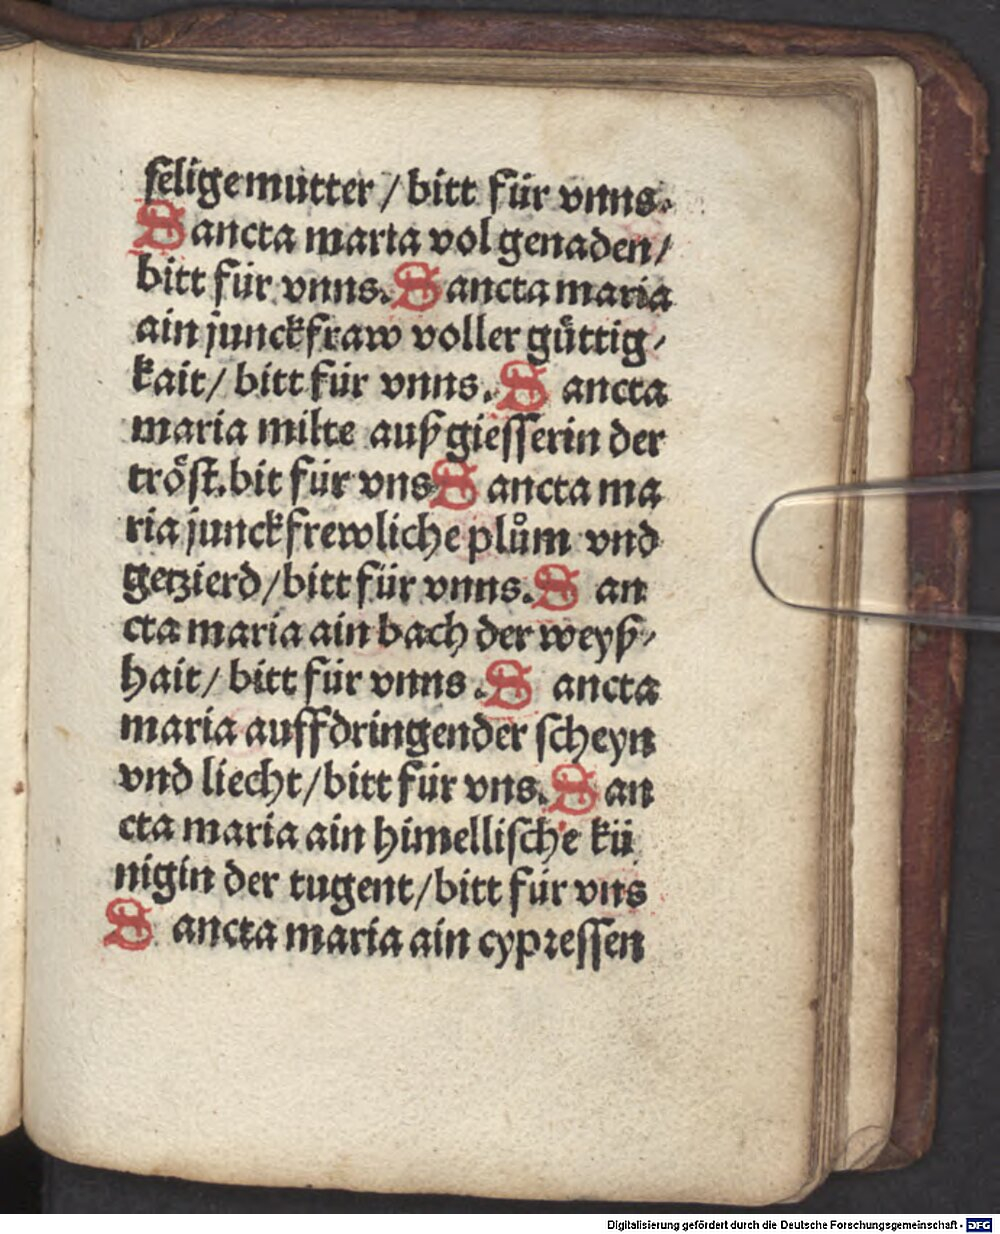 seligemutter / bitt für vnns.
Sancta maria vol genaden /
bitt für vnns. Sancta maria
ain junckfraw voller güttig⸗
kait / bitt für vnns. Sancta
maria milte außgiesserin der
tröst. bit für vns Sancta ma
ria junckfrewliche plům vnd
getzierd / bitt für vnns. San
cta maria ain bach der weyß⸗
hait / bitt für vnns. Sancta
maria auffdringender scheyn
vnd liecht / bitt für vns. San
cta maria ain himellische kü
nigin der tugent / bitt für vns
Sancta maria ain cypressen
Digitalisierung gefördert durch die Deutsche Forschungsgemeinschaft - DFG